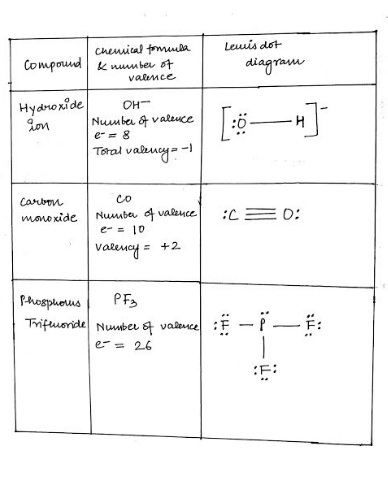 Compound
Chemical formula
& number of
valence
Lewis dot
diagram
Hydroxide
ion
OH⁻
Number of valence
e⁻ = 8
Total valency = -1
[:Ö — H]⁻
Carbon
monoxide
CO
Number of valence
e⁻ = 10
Valency = +2
:C ≡ O:
Phosphorus
Trifluoride
PF₃
Number of valence
e⁻ = 26
:F̈ — P̈ — F̈:
|
:F̤̈: